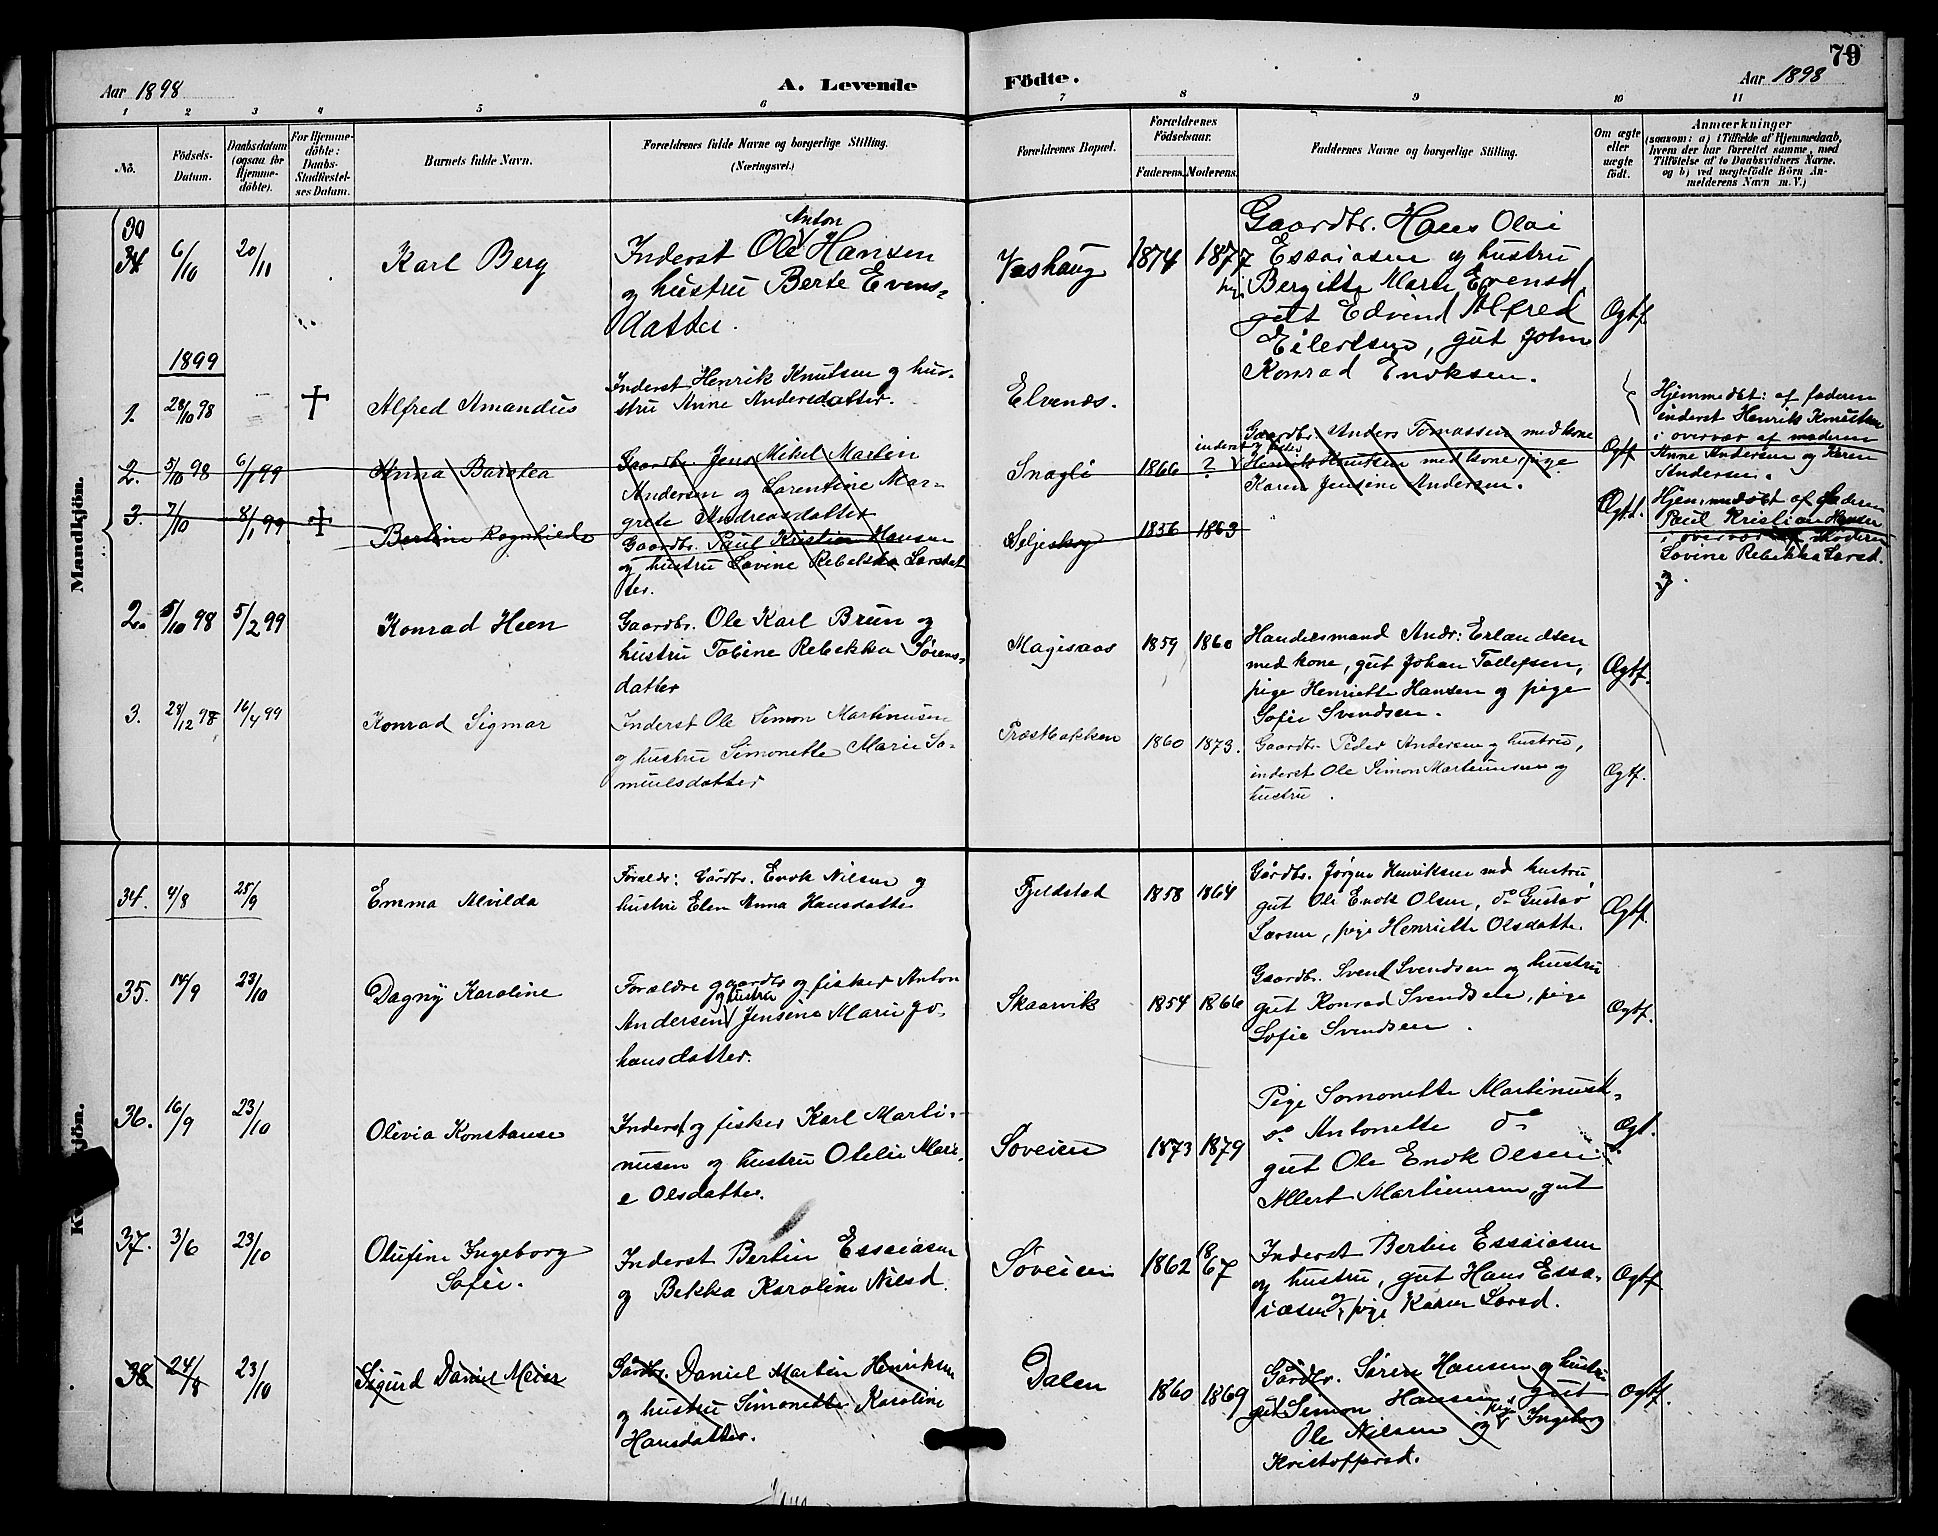 79
Aar 1898
A. Levende
Födte.
Aar 1898
1
2
3
4
5
6
7
8
9
10
11
No.
Födsels-
Datum.
Daabsdatum
(ogsaa for
Hjemme-
döbte).
For Hjemme-
döbte:
Daabs-
Stadfæstel-
ses Datum.
Barnets fulde Navn.
Forældrenes fulde Navne og borgerlige Stilling.
(Næringsvei.)
Forældrenes Bopæl.
Forældrenes
Födselsaar.
Faderens.
Moderens.
Faddernes Navne og borgerlige Stilling.
Om ægte
eller
uægte
födt.
Anmærkninger
(saasom: a) i Tilfælde af Hjemmedaab,
hvem der har forrettet samme, med
Tilföielse af to Daabsvidners Navne.
og b) ved uægtefödte Börn An-
melderens Navn m. V.)
Mandkjön.
34
6/10
20/11
Karl Berg
Anton
Inderst Ole Hansen
og hustru Berte Evens-
datter.
Vashaug
1874
1877
Gaardbr. Hans Olai
Essaiasen og hustru
pige Bergitte Marie Evensd
gut Edvind Alfred
Eilertsen, gut John
Konrad Enoksen.
Ægtf
1899
1.
28/10 98
Alfred Amandus
Inderst Henrik Knutsen og hus-
stru Anne Andersdatter.
Elvenæs.
Hjemmedöbt: af faderen
inderst Henrik Knutsen
i overvær af moderen
Anne Andersen og Karen
Andersen.
2.
5/10 98
6/1 99
Anna Barolea
Gaardbr. Jens Mikel Martin
Andersen og Larentine Mar-
grete Andreasdatter
Snagli
1866
?
Gaardbr. Anders Tomassen med kone
inderst og fisker
Henrik Knutsen med kone, pige
Karen Jensine Andersen.
Ægtf
3.
7/10
8/1 99
Berline Ragnhilde
Gaardbr. Paul Kristian Hansen
og hustru Lovine Rebekka Larsdat
ter.
Seljeskog
1856
1863
Ægtf.
Hjemmedöbt af faderen
Paul Kristian Hansen
i overvær af Moderen
Lovine Rebekka Larsd.
og
2.
5/10 98
5/2 99
Konrad Heen
Gaardbr. Ole Karl Brun og
hustru Tobine Rebekka Sörens-
datter
Magisaas
1859
1860
Handersmand Andr: Erlandsen
med kone, gut Johan Tollefsen,
pige Henriette Hansen og pige
Sofie Svendsen.
Ægtf.
3.
28/12 98
16/4 99
Konrad Sigmar
Inderst Ole Simon Martinusen
og hustru Simonette Marie Sa-
muelsdatter
Præstbakken
1860
1873.
Gaardbr. Peder Andersen og hustru,
inderst Ole Simon Martinusen og
hustru.
Ægtf.
34.
4/8
25/9
Emma Alvilda
Foraldr: Gårdbr. Enok Nilsen og
hustru Elen Anna Hansdatter
Fjeldstad
1858
1864
Gårdbr. Jörgen Henriksen med hustru
gut Ole Enok Olsen, do Gustav
Larsen, pige Henriette Olsdatter.
Ægtf.
35.
14/9
23/10
Dagny Karoline
Forældre gaardbr og fisker Anton
og hustru
Andersen Jensine Marie Jo-
hansdatter.
Skaarvik
1854
1866
Gaardbr. Svend Svendsen og hustru
gut Konrad Svendsen, pige
Sofie Svendsen.
Ægtf.
36.
16/9
23/10
Olivia Konstanse
Inderst og fisker Karl Marti-
nusen og hustru Otelie Mari-
e Olsdatter.
Soveien
1873
1879
Pige Somonette Martinusd.
do Antonette do
gut Ole Enok Olsen
Allert Martinusen, gut
Ægt.
37.
3/6
23/10
Olufine Ingeborg
Sofie.
Inderst Bertin Essaiasen
og Bekka Karoline Nilsd.
Soveien
1862
1867
Inderst Bertin Essaiasen
og hustru, gut Hans Essa-
iasen, pige Karen Larsd.
Ægtf
38
24/8
23/10
Sigurd Daniel Meier
Gårdbr. Daniel Martin Henriksen
og hustru Simonette Karoline
Hansdatter.
Dalen
1860
1869
Gårdbr. Sören Hansen og hustru
gut Simon Hansen, gut
Ole Nilsen og pige Ingeborg
Kristoffersd.
Ægtf.